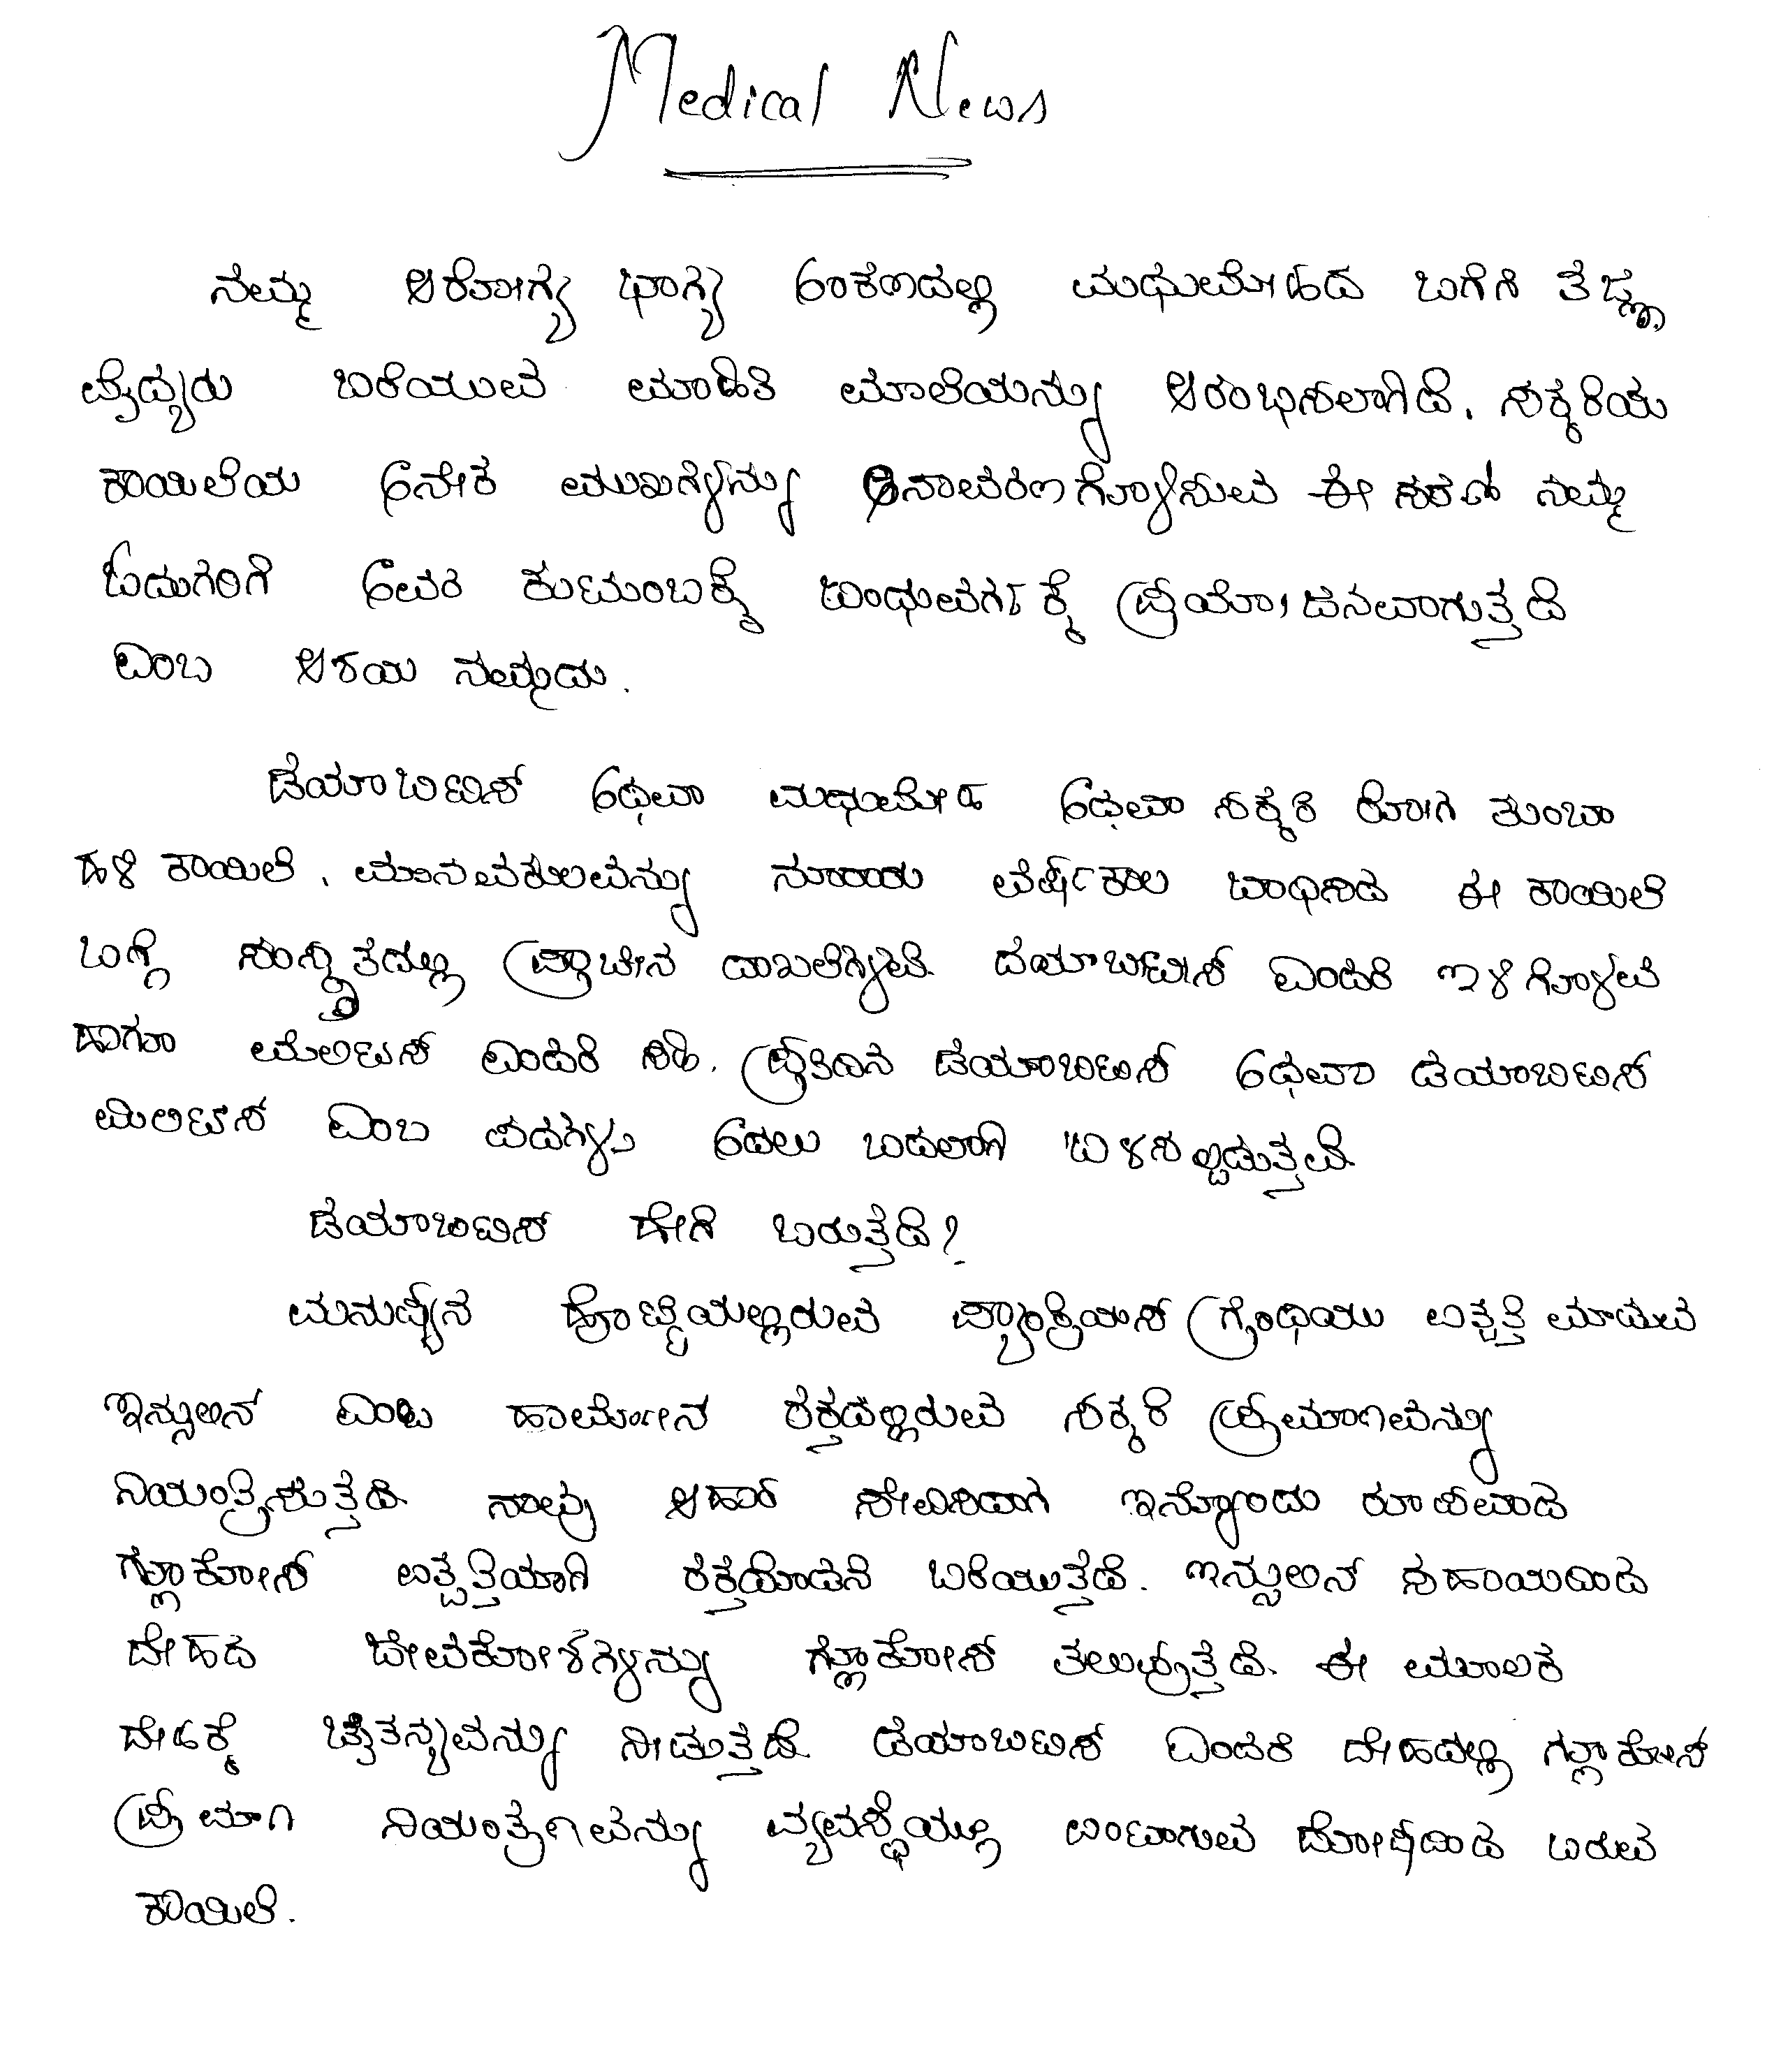 Medical News
ನಮ್ಮ ಆರೋಗ್ಯ ಭಾಗ್ಯ ಅಂಕಣದಲ್ಲಿ ಮಧುಮೇಹದ ಬಗೆಗೆ ತಜ್ಞ
ವೈದ್ಯರು ಬರೆಯುವ ಮಾಹಿತಿ ಮಾಲೆಯನ್ನು ಆರಂಭಿಸಲಾಗಿದೆ. ಸಕ್ಕರೆಯ
ಕಾಯಿಲೆಯ ಅನೇಕ ಮುಖಗಳನ್ನು ಅನಾವರಣಗೊಳಿಸುವ ಈ ಸರಣಿ ನಮ್ಮ
ಓದುಗರಿಗೆ ಅವರ ಕುಟುಂಬಕ್ಕೆ ಬಂಧುವರ್ಗಕ್ಕೆ ಪ್ರಯೋಜನವಾಗುತ್ತದೆ
ಎಂಬ ಆಶಯ ನಮ್ಮದು.
ಡಯಾಬಿಟಿಸ್ ಅಥವಾ ಮಧುಮೇಹ ಅಥವಾ ಸಕ್ಕರೆ ರೋಗ ತುಂಬಾ
ಹಳೆ ಕಾಯಿಲೆ. ಮಾನವಕುಲವನ್ನು ನೂರಾರು ವರ್ಷಕಾಲ ಬಾಧಿಸಿದ ಈ ಕಾಯಿಲೆ
ಬಗ್ಗೆ ಸಂಸ್ಕೃತದಲ್ಲಿ ಪ್ರಾಚೀನ ದಾಖಲೆಗಳಿವೆ. ಡಯಾಬಿಟಿಸ್ ಎಂದರೆ ಇಳಿಗೊಳವೆ
ಹಾಗೂ ಮೆಲಿಟಸ್ ಎಂದರೆ ಸಿಹಿ. ಪ್ರತಿದಿನ ಡಯಾಬಿಟಿಸ್ ಅಥವಾ ಡಯಾಬಿಟಿಸ್
ಮಿಲಿಟಸ್ ಎಂಬ ಪದಗಳು ಅದಲು ಬದಲಾಗಿ ಬಳಸಲ್ಪಡುತ್ತವೆ.
ಡಯಾಬಿಟಿಸ್ ಹೇಗೆ ಬರುತ್ತದೆ?
ಮನುಷ್ಯನ ಹೊಟ್ಟೆಯಲ್ಲಿರುವ ಪ್ಯಾಂಕ್ರಿಯಸ್ ಗ್ರಂಥಿಯು ಉತ್ಪತ್ತಿ ಮಾಡುವ
ಇನ್ಸುಲಿನ್ ಎಂಬ ಹಾರ್ಮೋನ ರಕ್ತದಲ್ಲಿರುವ ಸಕ್ಕರೆ ಪ್ರಮಾಣವನ್ನು
ನಿಯಂತ್ರಿಸುತ್ತದೆ. ನಾವು ಆಹಾರ ಸೇವಿಸಿದಾಗ ಇನ್ನೊಂದು ರೂಪವಾದ
ಗ್ಲೂಕೋಸ್ ಉತ್ಪತ್ತಿಯಾಗಿ ರಕ್ತದೊಡನೆ ಬೆರೆಯುತ್ತದೆ. ಇನ್ಸುಲಿನ್ ಸಹಾಯದಿಂದ
ದೇಹದ ಜೀವಕೋಶಗಳನ್ನು ಗ್ಲೂಕೋಸ್ ತಲುಪುತ್ತದೆ. ಈ ಮೂಲಕ
ದೇಹಕ್ಕೆ ಚೈತನ್ಯವನ್ನು ನೀಡುತ್ತದೆ. ಡಯಾಬಿಟಿಸ್ ಎಂದರೆ ದೇಹದಲ್ಲಿ ಗ್ಲೂಕೋಸ್
ಪ್ರಮಾಣ ನಿಯಂತ್ರಣವನ್ನು ವ್ಯವಸ್ಥೆಯಲ್ಲಿ ಉಂಟಾಗುವ ದೋಷದಿಂದ ಬರುವ
ಕಾಯಿಲೆ.